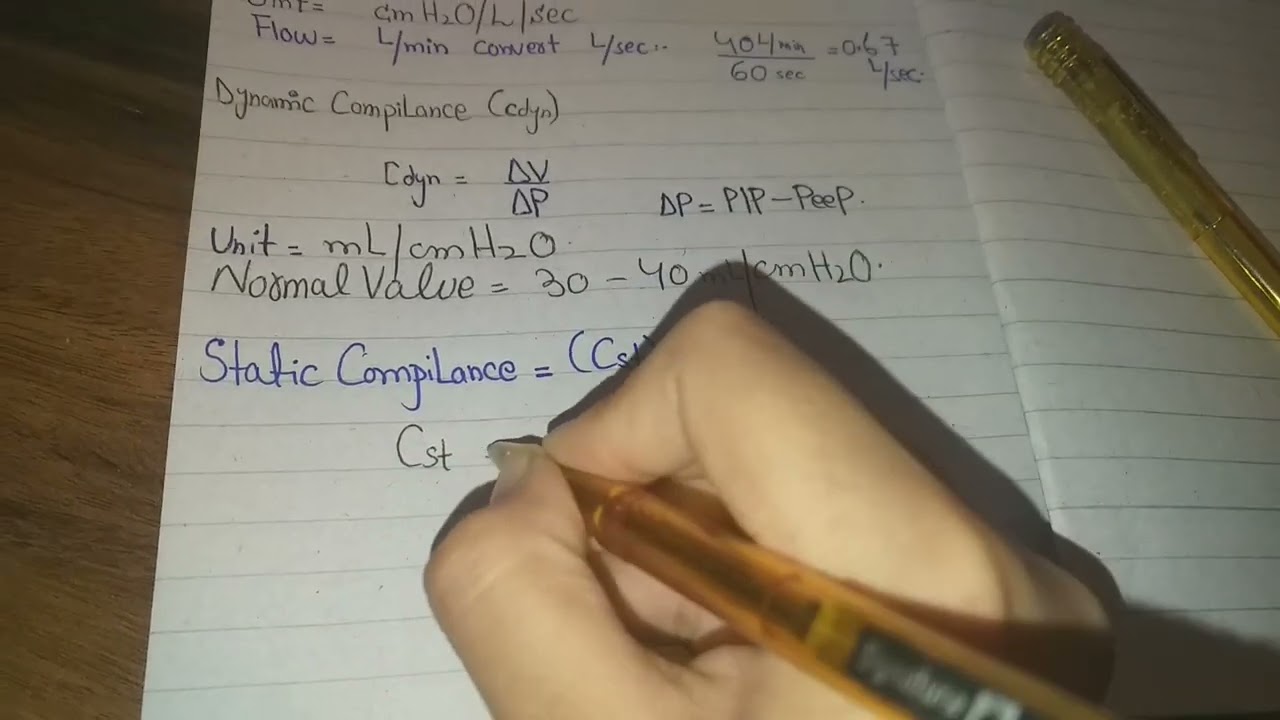 cmH2O/L/sec
Flow= L/min convert L/sec.. 40L/min / 60 sec =0.67 L/sec.
Dynamic Compilance (cdyn)
Cdyn = ΔV / ΔP ΔP = PIP-PeeP.
Unit = mL/cmH2O.
Normal Value = 30-40 mL/cmH2O.
Static Compilance = (Cst)
Cst